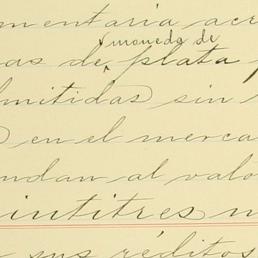 mentaria acr
moneda de
as de plata
mitidas sin
en el merca
ndan al valo
intitres m
sus réditos